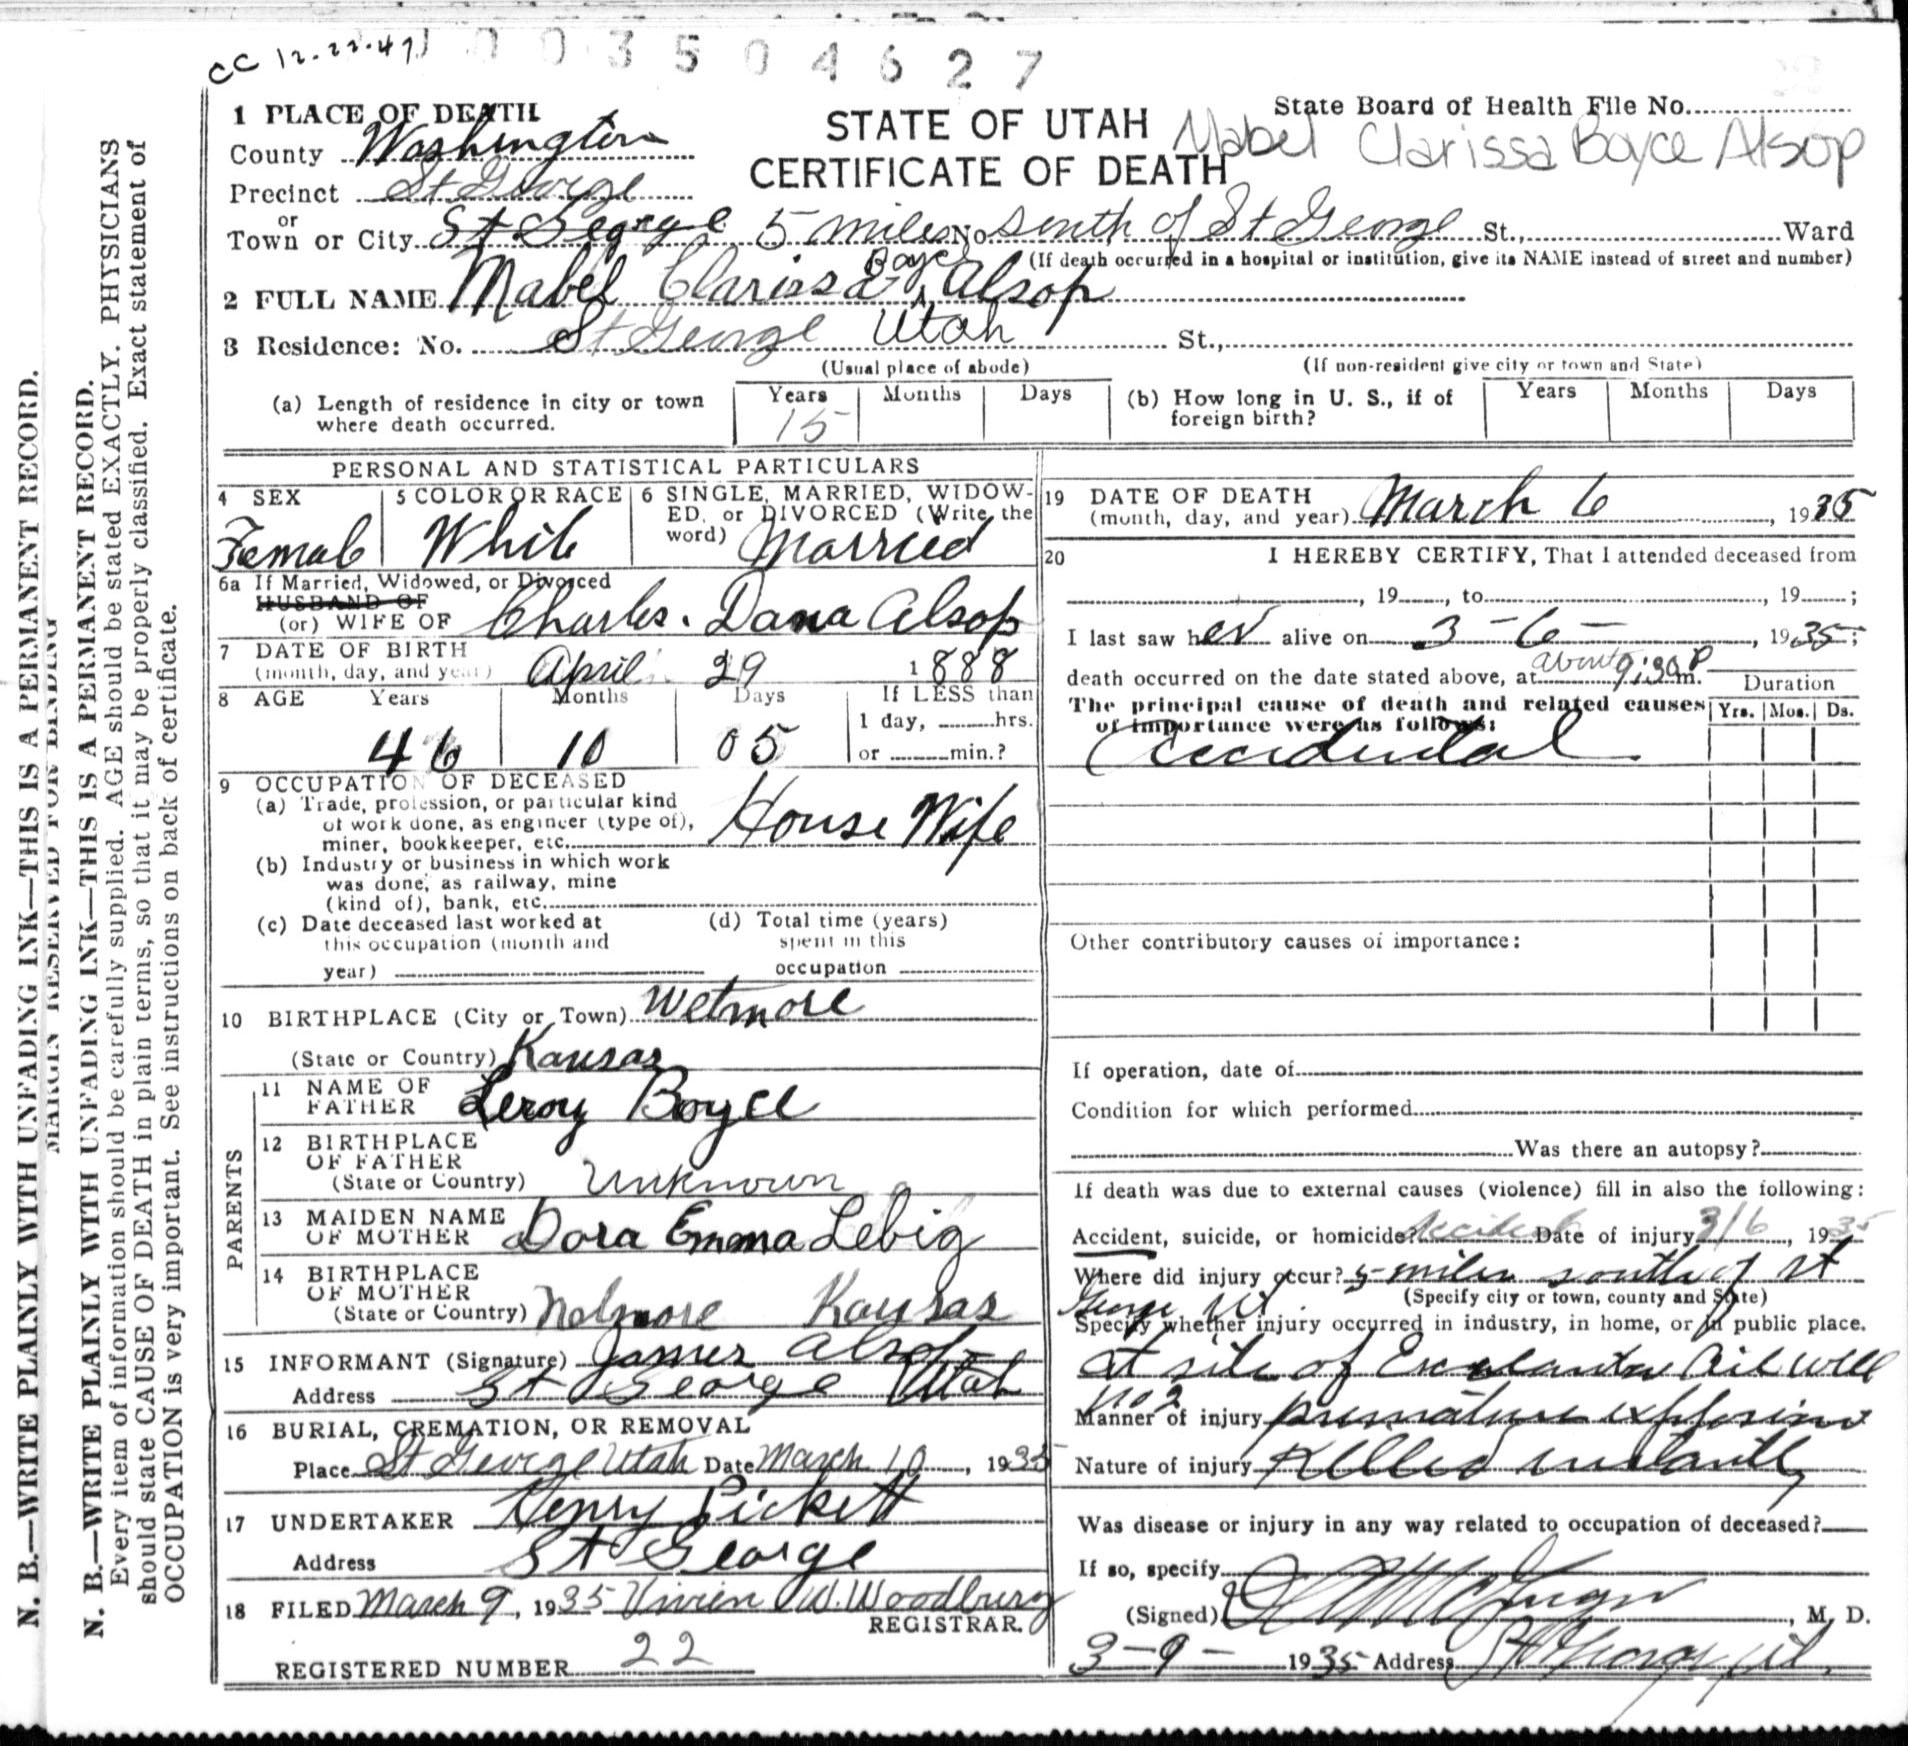 CC 12.22.47
1 0 0 3 5 0 4 6 2 7
1 PLACE OF DEATH
County Washington
Precinct St George
or
Town or City St George 5 miles No south of St George St., Ward
(If death occurred in a hospital or institution, give its NAME instead of street and number)
STATE OF UTAH
CERTIFICATE OF DEATH
State Board of Health File No.
Mabel Clarissa Boyce Alsop
2 FULL NAME Mabel Clarissa Boyce Alsop
3 Residence: No. St George Utah St.,
(Usual place of abode) (If non-resident give city or town and State)
(a) Length of residence in city or town where death occurred. Years 15 Months Days
(b) How long in U. S., if of foreign birth? Years Months Days
PERSONAL AND STATISTICAL PARTICULARS
4 SEX Female
5 COLOR OR RACE White
6 SINGLE, MARRIED, WIDOWED, or DIVORCED (Write the word) Married
6a If Married, Widowed, or Divorced
HUSBAND OF
(or) WIFE OF Charles. Dana Alsop
7 DATE OF BIRTH
(month, day, and year) April 29 1888
8 AGE Years Months Days If LESS than
46 10 05 1 day, hrs.
or min.?
9 OCCUPATION OF DECEASED
(a) Trade, profession, or particular kind
of work done, as engineer (type of),
miner, bookkeeper, etc. House Wife
(b) Industry or business in which work
was done, as railway, mine
(kind of), bank, etc.
(c) Date deceased last worked at
this occupation (month and
year)
(d) Total time (years)
spent in this
occupation
10 BIRTHPLACE (City or Town) Wetmore
(State or Country) Kansas
PARENTS
11 NAME OF FATHER Leroy Boyce
12 BIRTHPLACE OF FATHER
(State or Country) Unknown
13 MAIDEN NAME OF MOTHER Dora Emma Lebig
14 BIRTHPLACE OF MOTHER
(State or Country) Kansas
15 INFORMANT (Signature) James Alsop
Address St George Utah
16 BURIAL, CREMATION, OR REMOVAL
Place St George Utah Date March 10, 1935
17 UNDERTAKER Henry Pickett
Address St George
18 FILED March 9, 1935 Vivien W. Woodbury
REGISTRAR.
REGISTERED NUMBER 22
19 DATE OF DEATH
(month, day, and year) March 6, 1935
20 I HEREBY CERTIFY, That I attended deceased from
, 19 , to , 19 ;
I last saw her alive on 3-6-, 1935;
death occurred on the date stated above, at about 9:30 P m.
Duration
The principal cause of death and related causes
of importance were as follows: Yrs. Mos. Ds.
Accidental
Other contributory causes of importance:
If operation, date of
Condition for which performed
Was there an autopsy?
If death was due to external causes (violence) fill in also the following:
Accident, suicide, or homicide? Accident Date of injury 3/6, 1935
Where did injury occur? 5 miles south of St
George Ut. (Specify city or town, county and State)
Specify whether injury occurred in industry, in home, or in public place.
at site of Oil well
No 2
Manner of injury premature explosion
Nature of injury Killed instantly
Was disease or injury in any way related to occupation of deceased?
If so, specify
(Signed) , M. D.
3-9- 1935 Address St George, Ut.
N. B.—WRITE PLAINLY WITH UNFADING INK—THIS IS A PERMANENT RECORD.
MARGIN RESERVED FOR BINDING
N. B.—WRITE PLAINLY WITH UNFADING INK—THIS IS A PERMANENT RECORD.
Every item of information should be carefully supplied. AGE should be stated EXACTLY. PHYSICIANS
should state CAUSE OF DEATH in plain terms, so that it may be properly classified. Exact statement of
OCCUPATION is very important. See instructions on back of certificate.